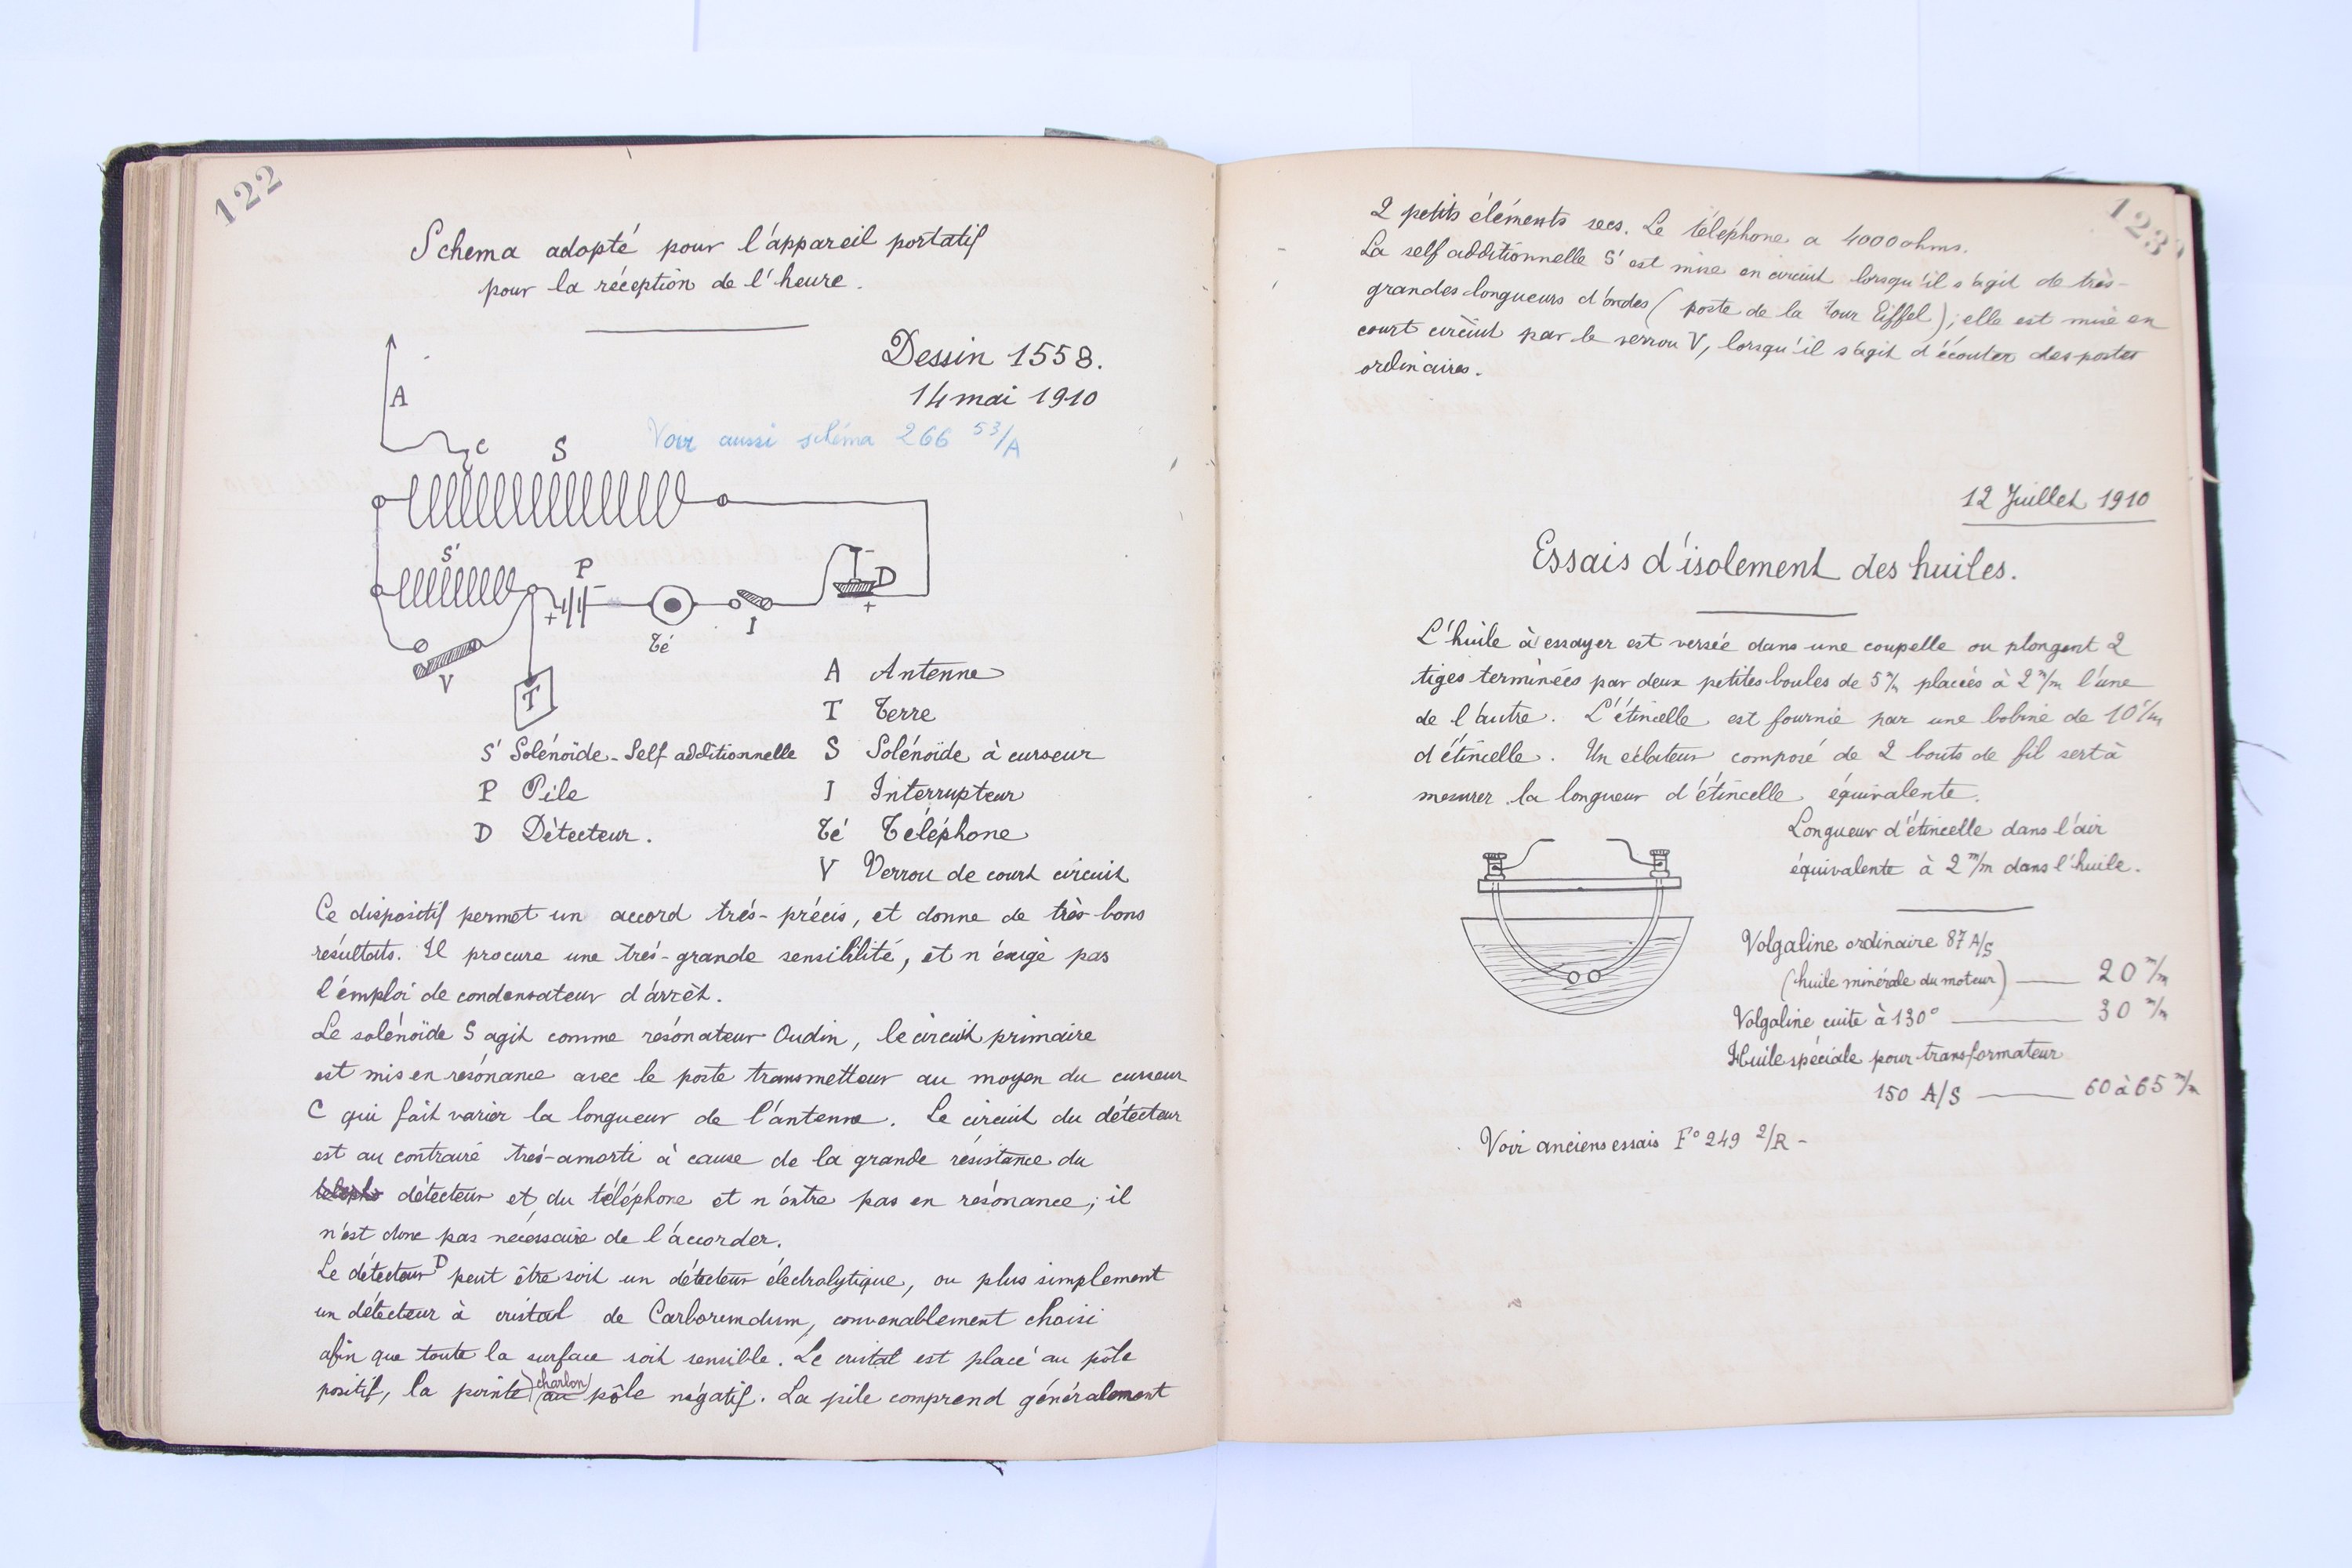 122
Schema adopté pour l'appareil portatif
pour la réception de l'heure.
Dessin 1558.
14 mai 1910
Voir aussi schéma 266 53/A
A
C
S
S'
P
D
+
-
+
-
Té
I
V
T
A Antenne
T Terre
S' Solénoïde - Self additionnelle S Solénoïde à curseur
P Pile I Interrupteur
D Détecteur. Té Téléphone
V Verrou de court circuit
Ce dispositif permet un accord très-précis, et donne de très bons
résultats. Il procure une très-grande sensibilité, et n'exige pas
l'emploi de condensateur d'arrêt.
Le solénoïde S agit comme résonateur Oudin, le circuit primaire
est mis en résonance avec le poste transmetteur au moyen du curseur
C qui fait varier la longueur de l'antenne. Le circuit du détecteur
est au contraire très-amorti à cause de la grande résistance du
détecteur et du téléphone et n'entre pas en résonance; il
n'est donc pas nécessaire de l'accorder.
Le détecteur D peut être soit un détecteur électrolytique, ou plus simplement
un détecteur à cristal de Carborundum, convenablement choisi
afin que toute la surface soit sensible. Le cristal est placé au pôle
positif, la pointe (charbon) au pôle négatif. La pile comprend généralement
123
2 petits éléments secs. Le téléphone a 4000 ohms.
La self additionnelle S' est mise en circuit lorsqu'il s'agit de très-
grandes longueurs d'ondes (poste de la tour Eiffel); elle est mise en
court circuit par le verrou V, lorsqu'il s'agit d'écouter des postes
ordinaires.
12 Juillet 1910
Essais d'isolement des huiles.
L'huile à essayer est versée dans une coupelle ou plongent 2
tiges terminées par deux petites boules de 5 m/m placées à 2 m/m l'une
de l'autre. L'étincelle est fournie par une bobine de 10 c/m
d'étincelle. Un éclateur composé de 2 bouts de fil sert à
mesurer la longueur d'étincelle équivalente.
Longueur d'étincelle dans l'air
équivalente à 2 m/m dans l'huile.
Volgaline ordinaire 87 A/S
(huile minérale du moteur) — 20 m/m
Volgaline cuite à 130° — 30 m/m
Huile spéciale pour transformateur
150 A/S — 60 à 65 m/m
Voir anciens essais F° 249 2/R -